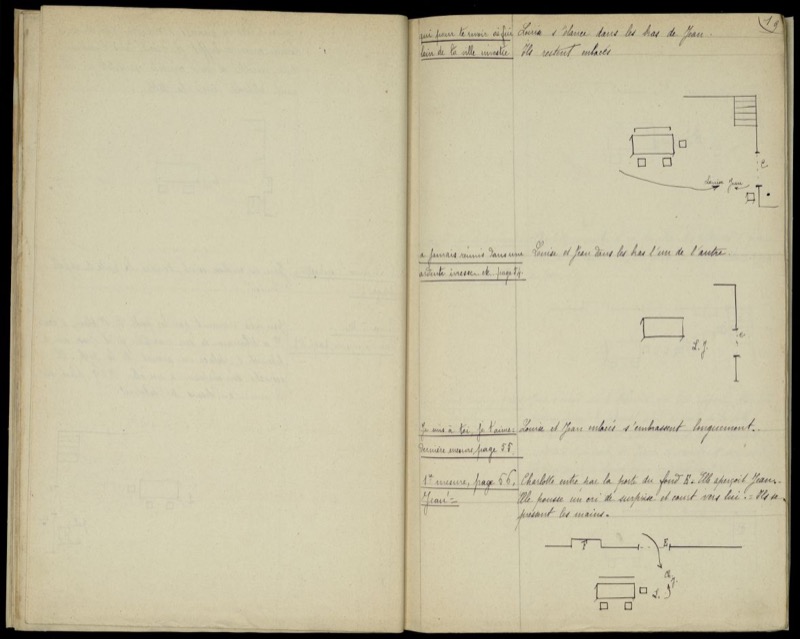 19
qui pour te revoir
Louise s'élance dans les bras de Jean.
de la ville
Ils restent enlacés
C
Louise Jean
à jamais réunis dans une
Louise et Jean dans les bras l'un de l'autre.
ardente ivresse etc. page 54.
C
L. J.
Je suis à toi, je t'aime.
Louise et Jean enlacés s'embrassent longuement.
Dernière mesure, page 55.
1re mesure, page 56.
Charlotte entre par la porte du fond E. Elle aperçoit Jean.
Jean! =
Elle pousse un cri de surprise et court vers lui. = Ils se
pressent les mains.
F E
Ch.
L. J.